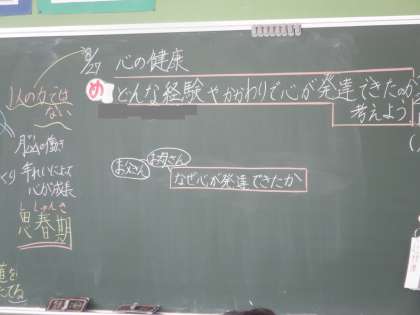 8/27 心の健康
め どんな経験やかかわりで心が発達できたのか
考えよう
お父さん
お母さん
なぜ心が発達できたか
1人の力では
ない
脳の働き
によって
心が成長
ししゅんき
思春期